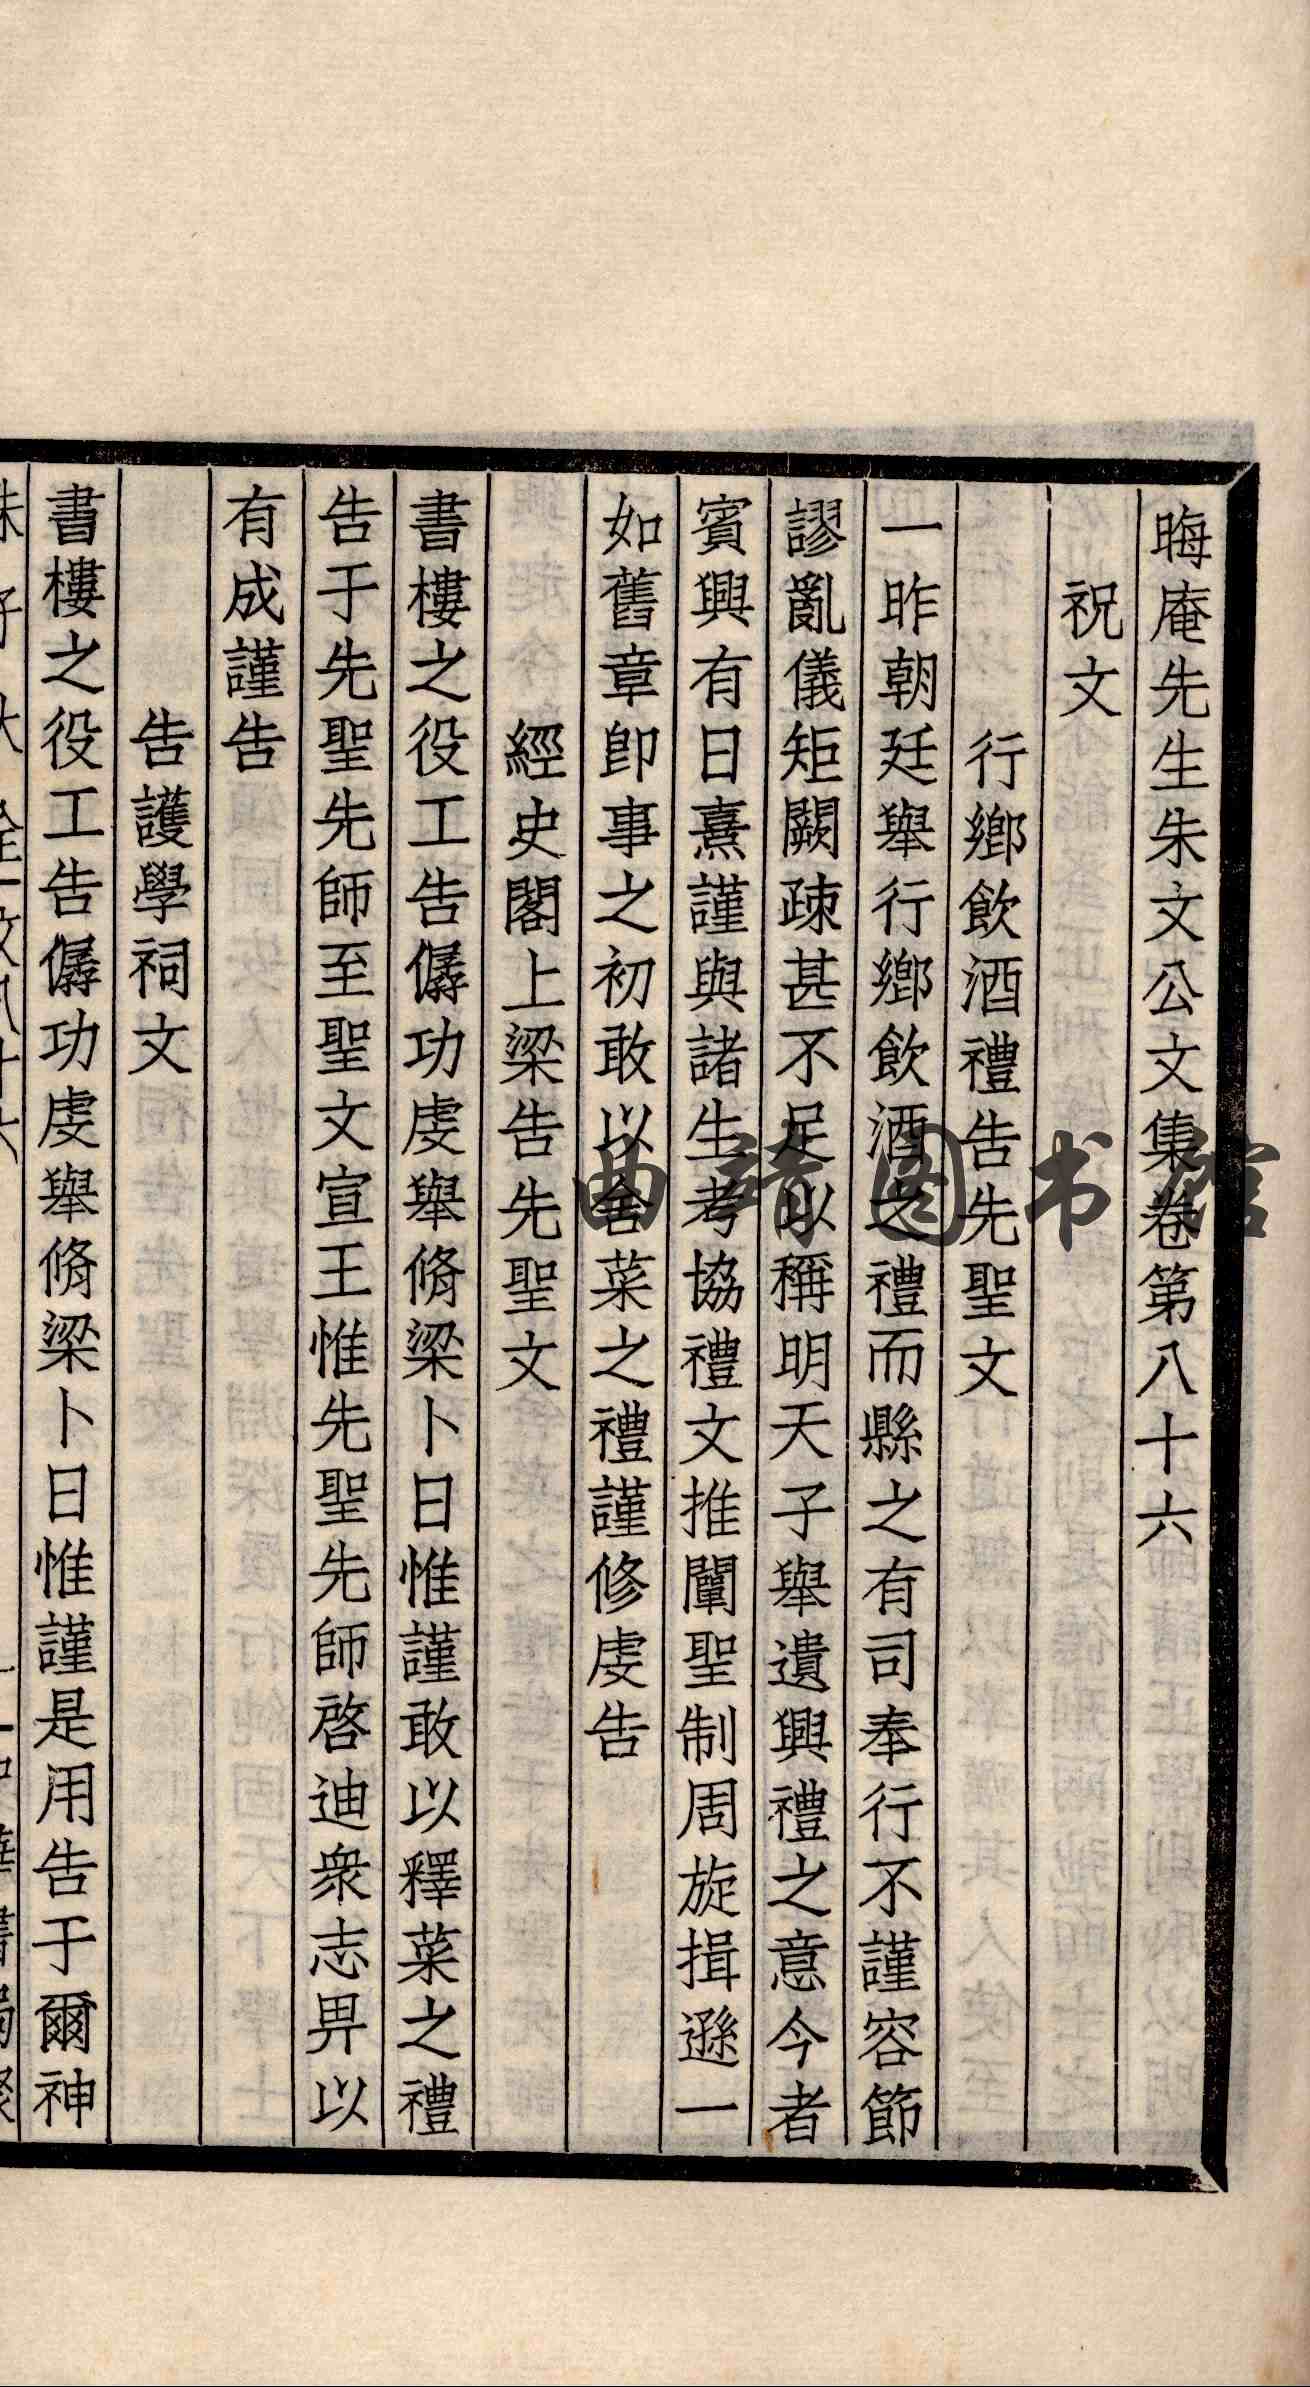 晦庵先生朱文公文集卷第八十六
祝文
行鄉飲酒禮告先聖文
一昨朝廷舉行鄉飲酒之禮而縣之有司奉行不謹容節
謬亂儀矩闕疎甚不足以稱明天子舉遺興禮之意今者
賓興有日熹謹與諸生考協禮文推闡聖制周旋揖遜一
如舊章卽事之初敢以舍菜之禮謹修虔告
經史閣上梁告先聖文
書樓之役工告僝功虔舉脩梁卜日惟謹敢以釋菜之禮
告于先聖先師至聖文宣王惟先聖先師啓迪衆志畀以
有成謹告
告護學祠文
書樓之役工告僝功虔舉脩梁卜日惟謹是用告于爾神
曲靖图书馆